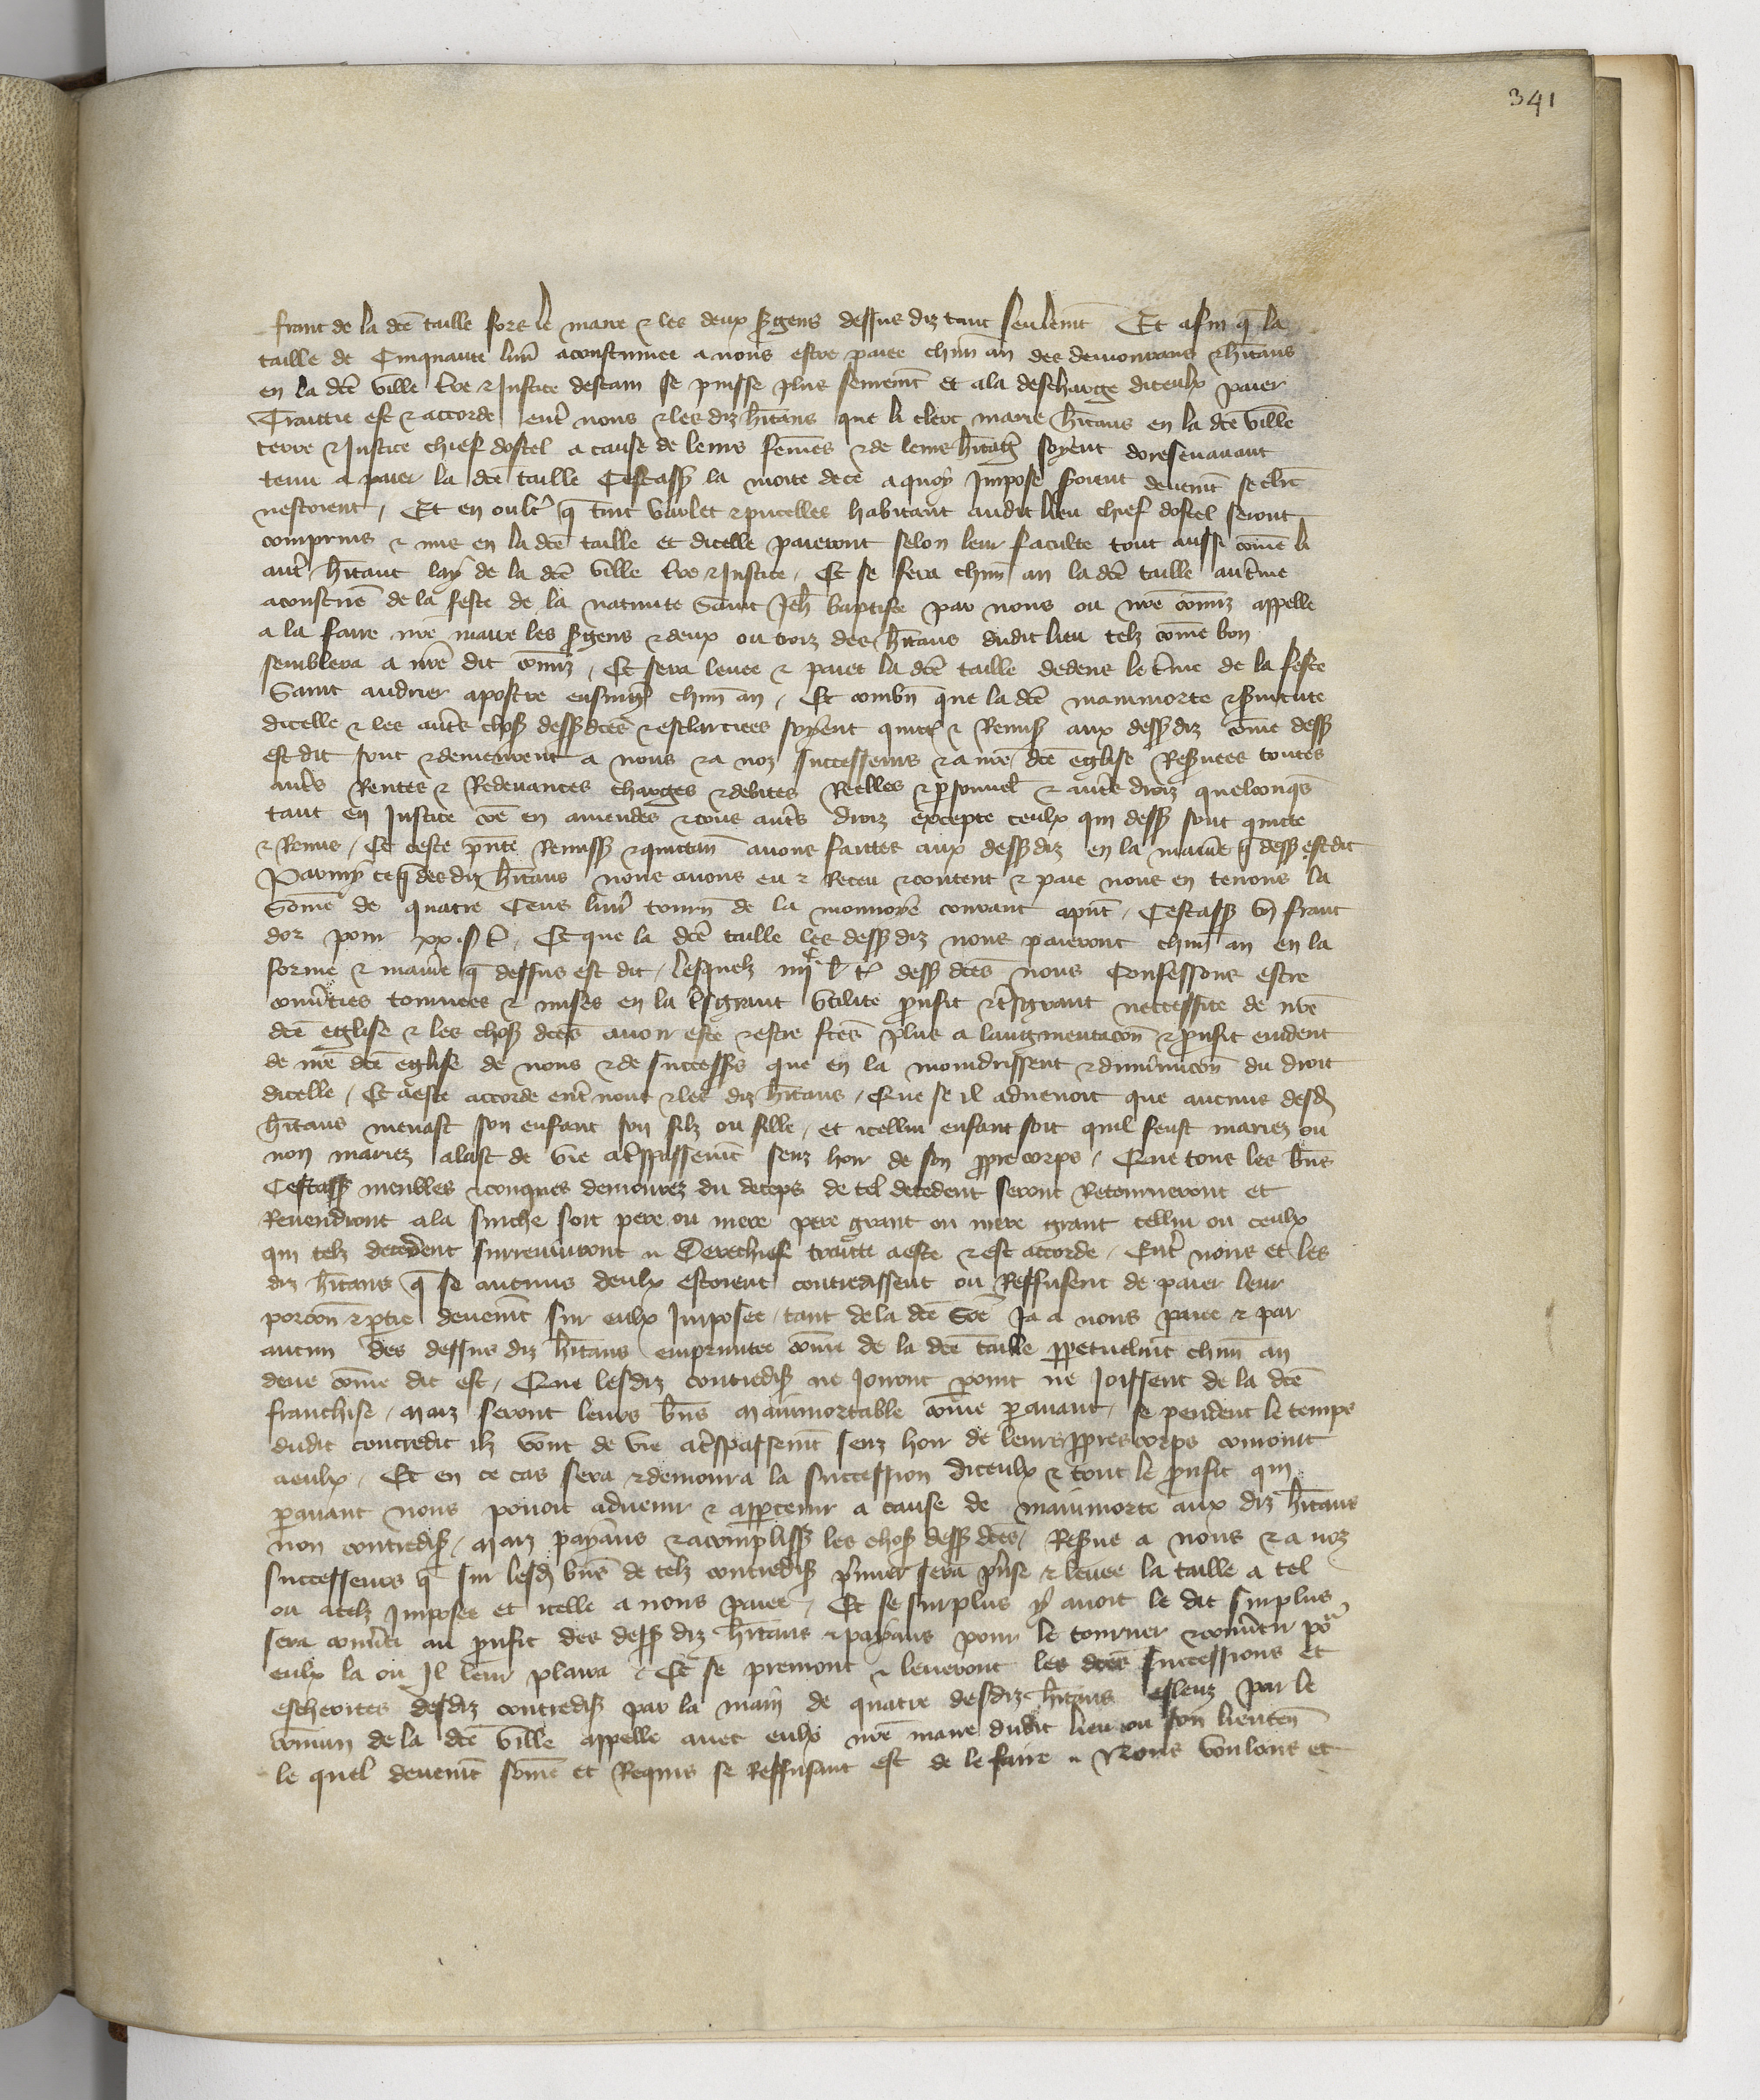 341
franc de la dcē taille fors le maire & les deux s'gens dessus diz tant seulemt Et afin q̄ la
taille de Cinquante livr acoustumee a nous estre paiee chūn an des demourans & hītans
en la dcē ville t're & Justice destain se puisse plus seuremt et a la descharge diceulx paier
Traittie est & accorde entr' nous & les diz hītans que li clerc marie hītans en la dcē ville
terre & Justice chief dostel a cause de leurs femēs & de leurs hītag' soyent doresenavant
tenu a paier la dcē taille Cestass' la moite de ce a quoy Impose seroient deuemt se clr̄c
nestoient / Et en oultr' q̄ tout varlet & pucelles habitant audit lieu chief dostel seront
comprins & mis en la dcē taille et dicelle paieront selon leur faculte tout aussi comē li
autr' hītant lay de la dcē ville t're & Justice / Et se fera chūn an la dcē taille au t'me
acoustume de la feste de la nativite Saint Jeh̄ baptiste par nous ou nr̄e cōmiz appelle
a la faire nr̄e maire les s'gens & deux ou troiz des hītans dudit lieu telz comē bon
semblera a nr̄e dit cōmiz / Et sera levee & paiee la dcē taille dedens le t'me de la feste
Saint andrier apostre ensuiv' chūn an / Et combn̄ que la dcē mainmorte & s'vitute
dicelle & les autrs chos' dess'dctēs & esclarcies soyent quitt' & Remis' aux dess'diz cōme dess'
est dit sont & demeurent a nous & a noz successeurs & a nr̄e dcē eglise Res'vees toutes
autrs Rentes & Redevances charges & debites Reelles & p'sonnel' & autrs droiz quelconqs
tant en Justice cōe en amendes & tous autrs droiz excepte ceulx qui dess' sont quicte
& Remis / Et ceste pn̄te Remiss' & quittan' avons faittes aux dess'diz en la manie' q̄ dess' est dit
Parmy ce q̄ des diz hītans nous avons eu & Receu & content & paie nous en tenons la
Some de quatre Cens livr' tourn' de la monnoye courant apnt / Cestass' un franc
dor pour xx. s t' / Et que la dcē taille les dess'diz nous paieront chūn an en la
forme & manie' q̄ dessus est dit / lesquelz iiijc l' t' dess' dctēs nous Confessons estre
conv'ties tournees & mises en la t'sgrant utilite p'ufit & t'sgrant neccessite de nr̄e
dcē eglise & les chos' dctēs avoir este & estre fctēs plus a laugmentacōn & p'ufit evident
de nr̄e dcē eglise de nous & de success's que en la moindrissent & diminucōn du droit
dicelle / Et a este accorde entr' nous & les diz hītans / Que se il advenoit que aucuns desd'
hītans menast son enfant son filz ou fille / et icellui enfant soit quil feust mariez ou
non mariez alast de vie a t'spassemt senz hoir de son p'pre corps / Que tous les bn̄s
Cestass' meubles & conques demourez du deceps de tel decedent seront Retourneront et
Revendront a la suiche soit pere ou mere pere grant ou mere grant cellui ou ceulx
qui telz decedent surremuront // Derechief traittie a este & est accorde / Entr' nous et les
diz hītans q̄ se aucuns deulx estoient contredissent ou Reffusent de paier leur
porcōn & p'tie deuemt sur eulx Imposee / tant de la dcē Some Ja a nous paiee & par
aucun des dessus diz hītans empruntee comē de la dcē taille p'petuelmt chūn an
deue comē dit est / Que lesdiz contredis' ne Joiront point ne Joissent de la dcē
franchise / maiz seront leurs bn̄s mainmortable comē p'avant / se pendent le temps
dudit contredit ilz vont de vie a t'spassemt senz hoir de leurs p'pres corps comont
a eulx / Et en ce cas sera & demoura la succession diceulx & tout le p'ufit qui
p'avant nous povoit advenir & app'tenir a cause de mainmorte aux diz hītans
non contredis' / maiz payans & acompliss' les chos' dess' dctēs / Res've a nous & a noz
successeurs q̄ sur lesd' bn̄s de telz contredis' p'mier sera p'nse & levee la taille a tel
ou a telz Imposee et icelle a nous paiee / Et se surplus y avoit le dit surplus
sera conv'ti au p'ufit des dess' diz hītans & payans pour le tourner & conv'tir po'
eulx la ou Il leur plaira / Et se prenront & leveront les dctēs successions et
escheoites desdiz contredis' par la main de quatre desdiz hītans esleuz par le
comun de la dcē ville appelle avec eulx nr̄e maire dudit lieu ou son lieuten'
le quel deuemt some et Requis se Reffusant est de le faire // Nous voulons et